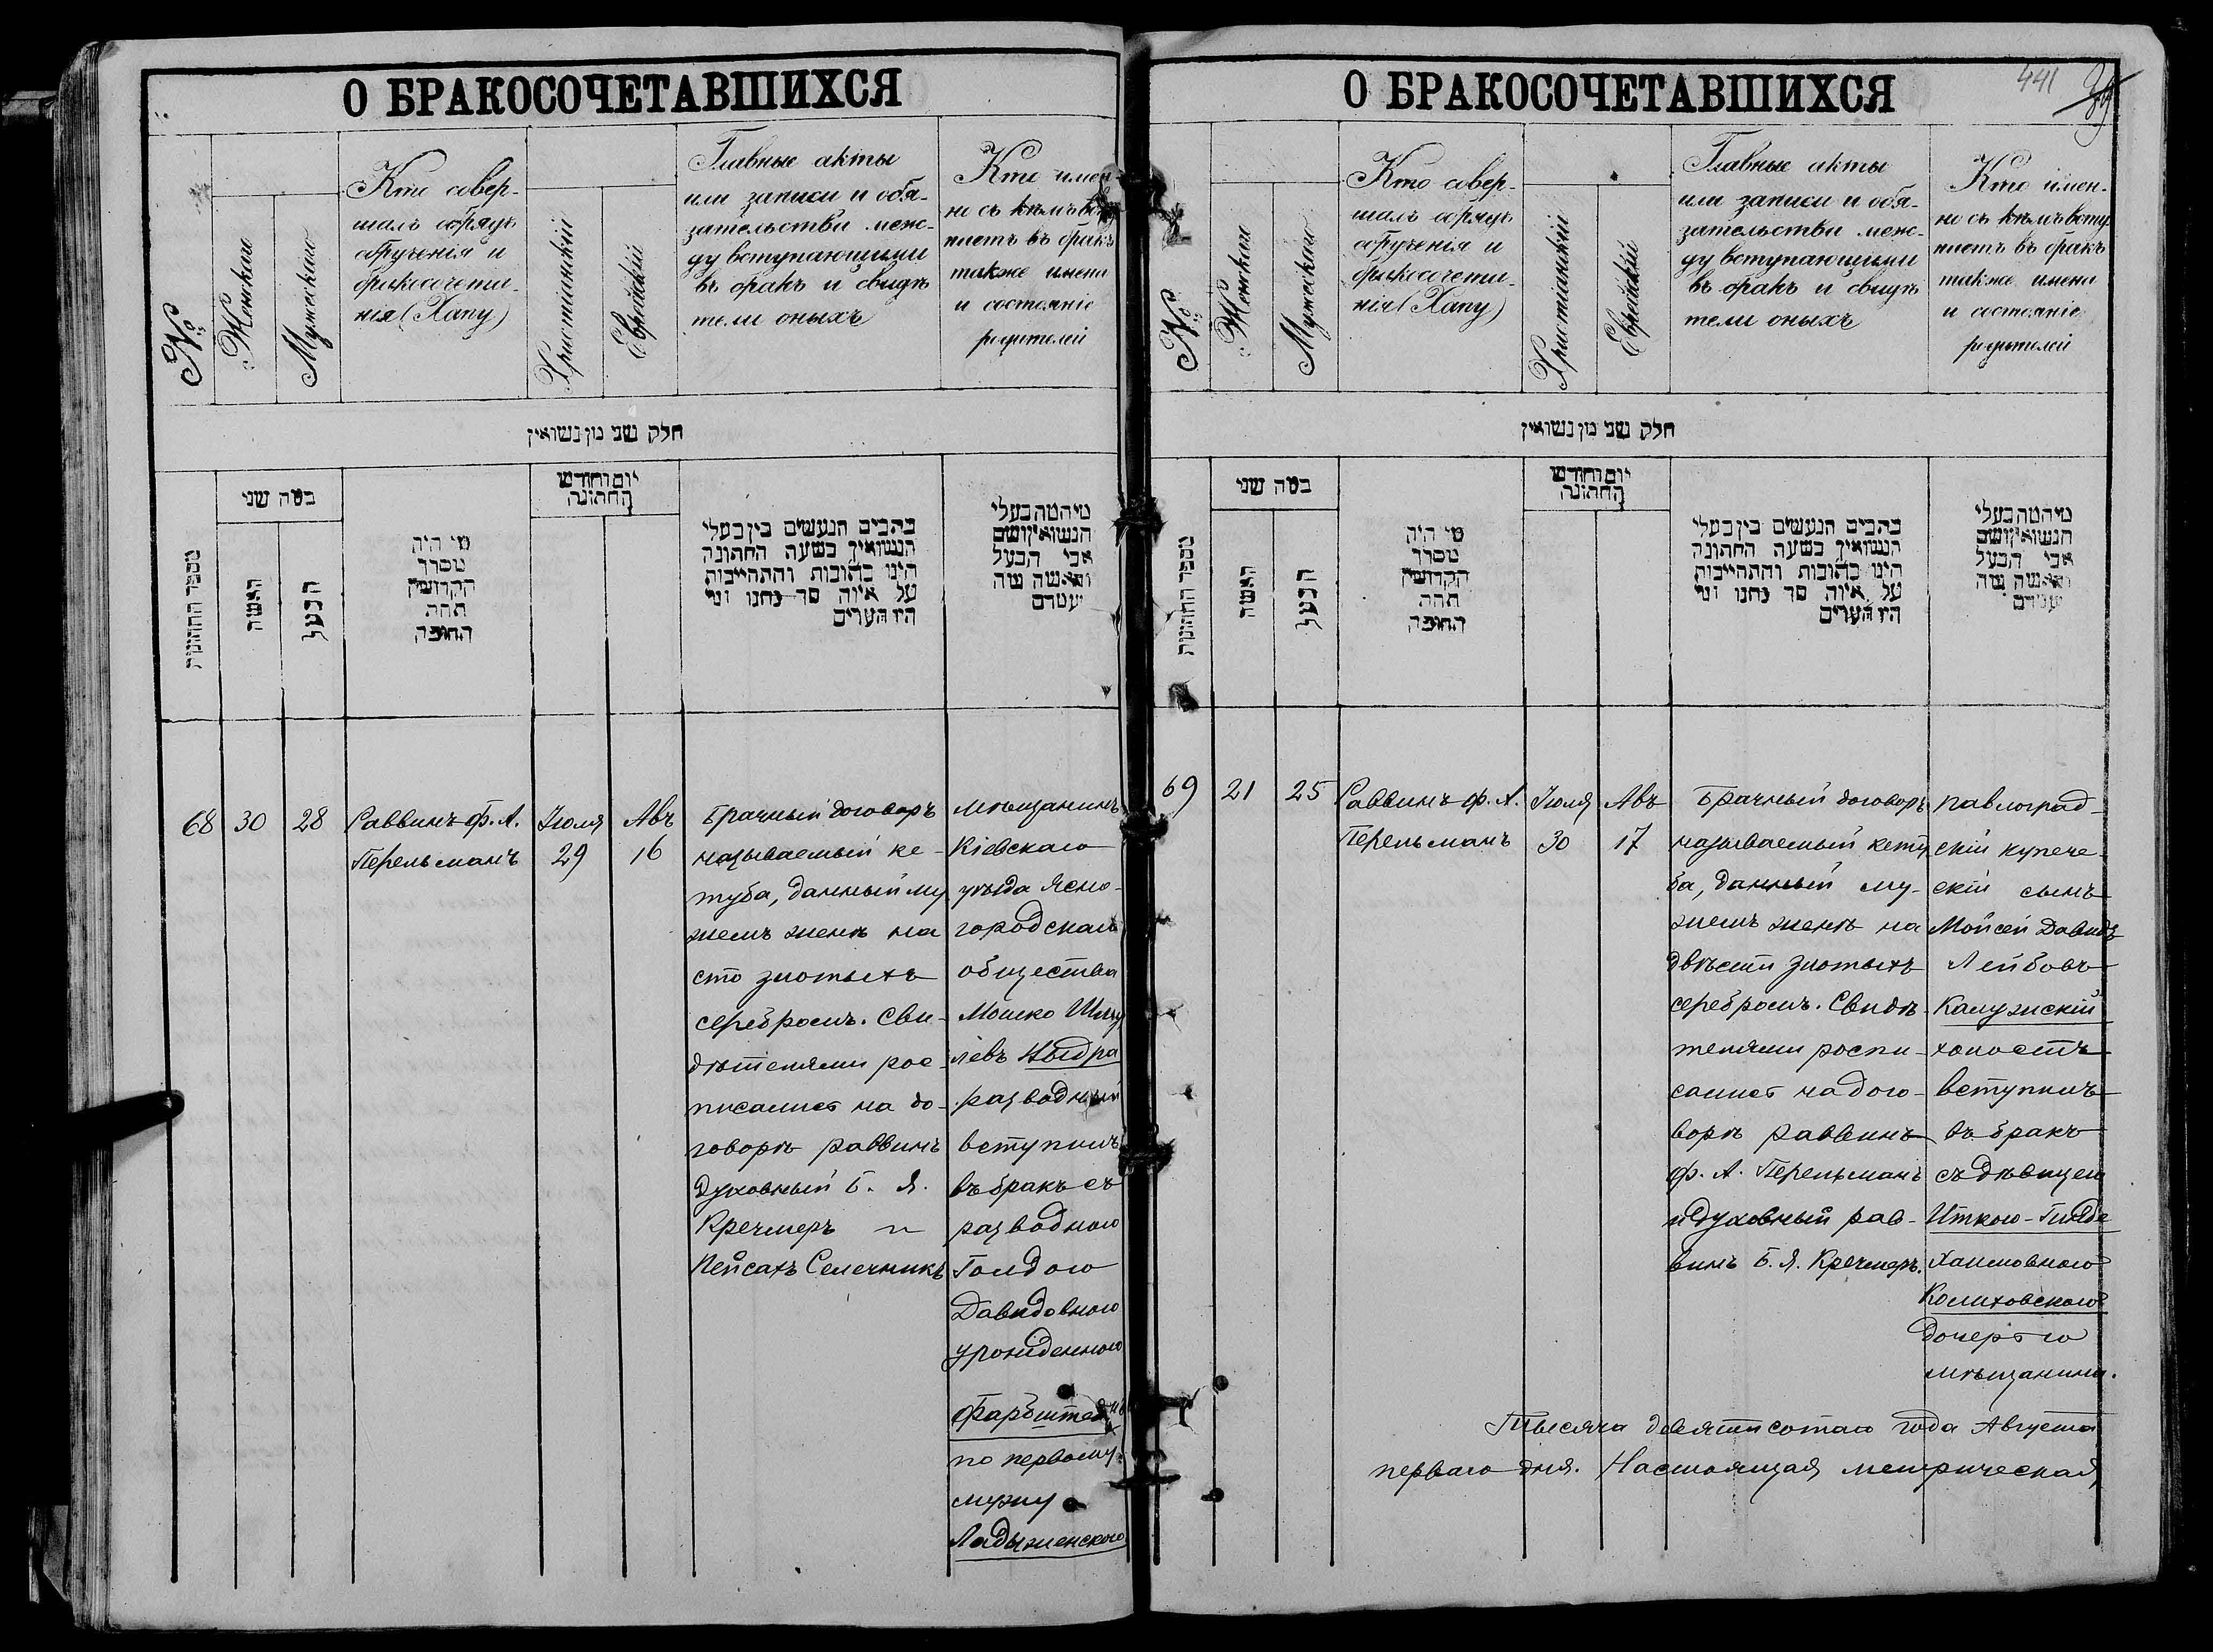 О БРАКОСОЧЕТАВШИХСЯ
№
Женскаго
Мужескаго
Кто совер-
шалъ обрядъ
обрученія и
бракосочета-
нія (Хапу)
Христіанскій
Еврейскій
Главные акты
или записи и обя-
зательства меж-
ду вступающими
въ бракъ и свидѣ
тели оныхъ
Кто имен-
но съ кѣмъ
паетъ въ бракъ
также имена
и состояніе
родителей
חלק שני מן נשואין
מספר החתונות
כמה שני
האשה
הבעל
מי היה
מסדר
הקדושין
תחת
החופה
יום וחודש
החתונה
כתבים הנעשים בין בעלי
הנשואין בשעה החתונה
הינו כתובות והתחייבות
על איזה סך נתנו ומי
היו העדים
מיהמה בעלי
הנשואין ושם
אבי הבעל
והאשה מה
מעמדם
68 30 28
Раввинъ Ф. А.
Перельманъ
Іюля
29
Авъ
16
Брачный договоръ
называемый ке-
туба, данный му
жемъ женѣ на
сто злотыхъ
серебромъ. Сви-
дѣтелями рос-
писались на до-
говорѣ раввинъ
Духовный Б. Я.
Кречмеръ и
Пейсахъ Селечникъ
Мѣщанинъ
Кіевскаго
уѣзда Ясно-
городскаго
общества
Мошко Шму
левъ Выдра
разводный
вступилъ
въ бракъ съ
разводною
Голдою
Давидовною
урожденною
Фарбштейнъ
по первому
мужу
Ладыженскою
О БРАКОСОЧЕТАВШИХСЯ
441
№
Женскаго
Мужескаго
Кто совер-
шалъ обрядъ
обрученія и
бракосочета-
нія (Хапу)
Христіанскій
Еврейскій
Главные акты
или записи и обя-
зательства меж-
ду вступающими
въ бракъ и свидѣ
тели оныхъ
Кто имен-
но съ кѣмъ всту
паетъ въ бракъ
также имена
и состояніе
родителей
חלק שני מן נשואין
מספר החתונות
כמה שני
האשה
הבעל
מי היה
מסדר
הקדושין
תחת
החופה
יום וחודש
החתונה
כתבים הנעשים בין בעלי
הנשואין בשעה החתונה
הינו כתובות והתחייבות
על איזה סך נתנו ומי
היו העדים
מיהמה בעלי
הנשואין ושם
אבי הבעל
והאשה מה
מעמדם
69 21 25
Раввинъ Ф. А.
Перельманъ
Іюля
30
Авъ
17
Брачный договоръ
называемый кету
ба, данный му-
жемъ женѣ на
двѣсти злотыхъ
серебромъ. Свидѣ-
телями роспи-
сались на дого-
ворѣ раввинъ
Ф. А. Перельманъ
и Духовный рав-
винъ Б. Я. Кречмеръ.
Павлоград-
скій купече-
скій сынъ
Мойсей Давидъ
Лейбовъ
Калужскій
холостъ
вступилъ
въ бракъ
съ дѣвицею
Иткою-Гинде
Хаимовною
Комиховскою
дочерью
мѣщанина.
Тысяча девятисотаго года Августа
перваго дня. Настоящая метрическая